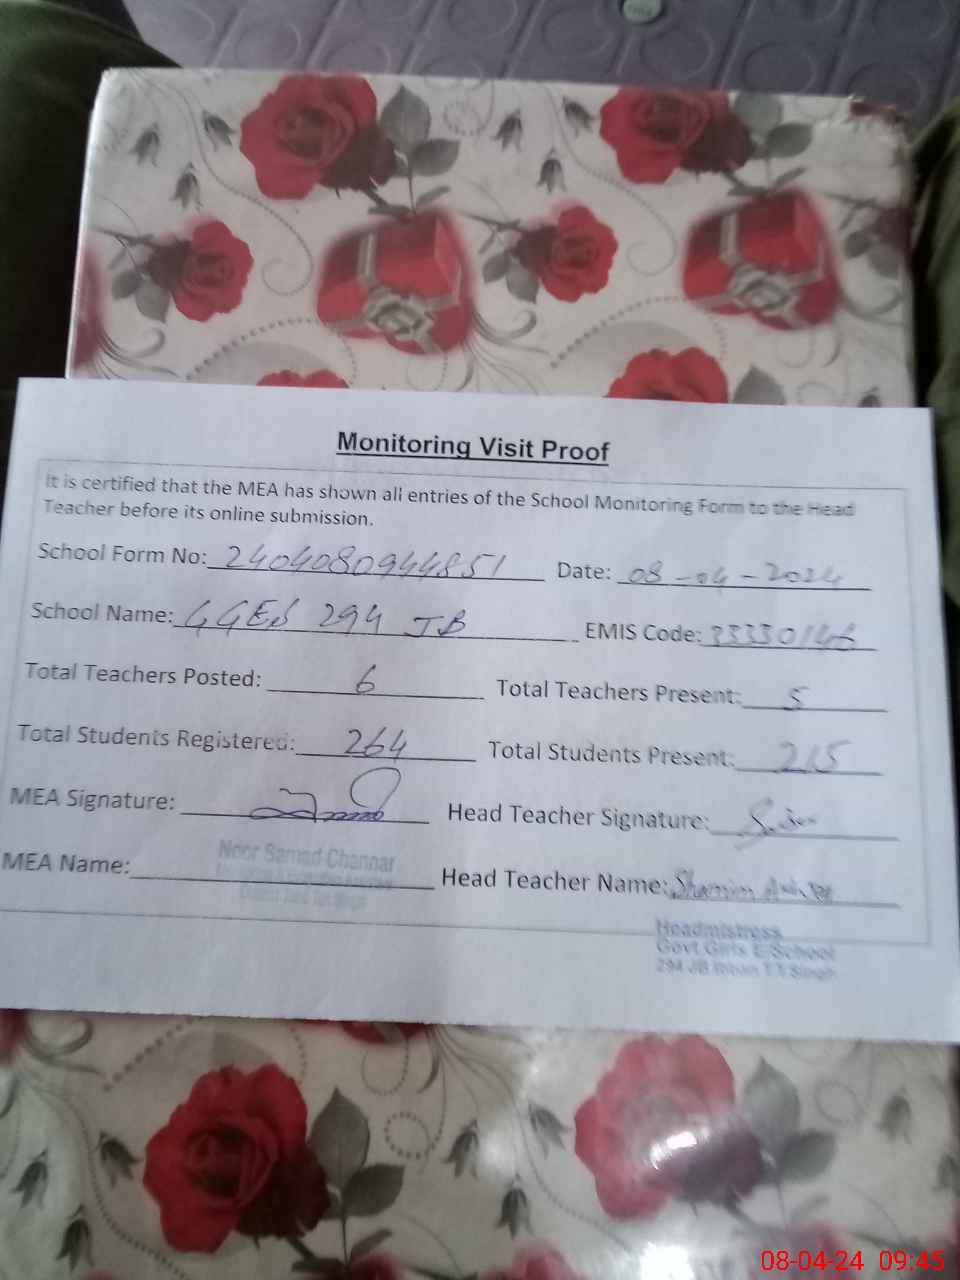 Monitoring Visit Proof
It is certified that the MEA has shown all entries of the School Monitoring Form to the Head
Teacher before its online submission.
School Form No: 2404080944851 Date: 08-04-2024
School Name: GGES 294 JB EMIS Code: 33330146
Total Teachers Posted: 6 Total Teachers Present: 5
Total Students Registered: 264 Total Students Present: 215
MEA Signature: Head Teacher Signature:
MEA Name: Noor Samad Channar Head Teacher Name: Shamim
Headmistress
Govt.Girls E/School
294 JB T.T.Singh
08-04-24 09:45